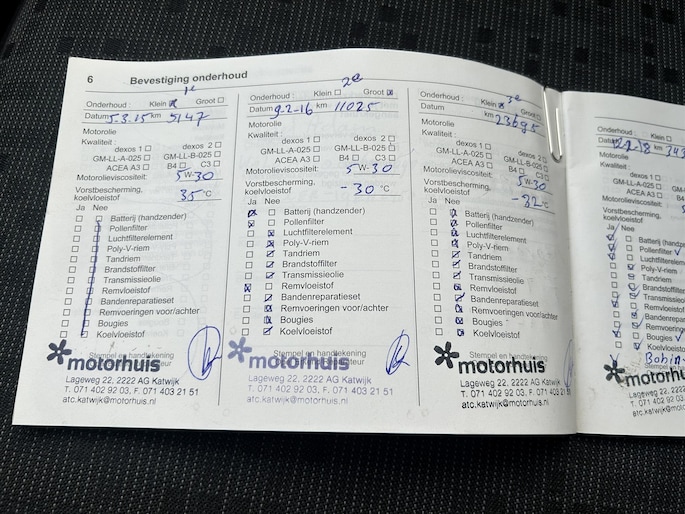 6 Bevestiging onderhoud
1e
Onderhoud : Klein Groot
Datum 5.3.15 km 5147
Motorolie
Kwaliteit :
dexos 1 dexos 2
GM-LL-A-025 GM-LL-B-025
ACEA A3 B4 C3
Motorolieviscositeit: 5W-30
Vorstbescherming,
koelvloeistof 35 °C
Ja Nee
Batterij (handzender)
Pollenfilter
Luchtfilterelement
Poly-V-riem
Tandriem
Brandstoffilter
Transmissieolie
Remvloeistof
Bandenreparatieset
Remvoeringen voor/achter
Bougies
Koelvloeistof
Stempel en handtekening
motorhuis
Lageweg 22, 2222 AG Katwijk
T. 071 402 92 03, F. 071 403 21 51
atc.katwijk@motorhuis.nl
2e
Onderhoud : Klein Groot
Datum 9-2-16 km 11025
Motorolie
Kwaliteit :
dexos 1 dexos 2
GM-LL-A-025 GM-LL-B-025
ACEA A3 B4 C3
Motorolieviscositeit: 5W-30
Vorstbescherming,
koelvloeistof -30 °C
Ja Nee
Batterij (handzender)
Pollenfilter
Luchtfilterelement
Poly-V-riem
Tandriem
Brandstoffilter
Transmissieolie
Remvloeistof
Bandenreparatieset
Remvoeringen voor/achter
Bougies
Koelvloeistof
Stempel en handtekening
motorhuis
Lageweg 22, 2222 AG Katwijk
T. 071 402 92 03, F. 071 403 21 51
atc.katwijk@motorhuis.nl
3e
Onderhoud : Klein Groot
Datum km 23695
Motorolie
Kwaliteit :
dexos 1 dexos 2
GM-LL-A-025 GM-LL-B-025
ACEA A3 B4 C3
Motorolieviscositeit: 5W-30
Vorstbescherming,
koelvloeistof -32 °C
Ja Nee
Batterij (handzender)
Pollenfilter
Luchtfilterelement
Poly-V-riem
Tandriem
Brandstoffilter
Transmissieolie
Remvloeistof
Bandenreparatieset
Remvoeringen voor/achter
Bougies
Koelvloeistof
Stempel en handtekening
motorhuis
Lageweg 22, 2222 AG Katwijk
T. 071 402 92 03, F. 071 403 21 51
atc.katwijk@motorhuis.nl
Onderhoud :
km 343
Motorolie
Kwaliteit :
dexos 1
GM-LL-A-025
ACEA A3
Motorolieviscositeit:
Vorstbescherming,
koelvloeistof
Ja Nee
Batterij (handz
Pollenfilter
Luchtfilterelem
Poly-V-riem
Tandriem
Brandstoffilter
Transmissieo
Remvloeistof
Bandenrepara
Remvoeringen
Bougies
Koelvloeistof
motorhu
Lageweg 22, 2222
T. 071 402 92 03,
atc.katwijk@moto